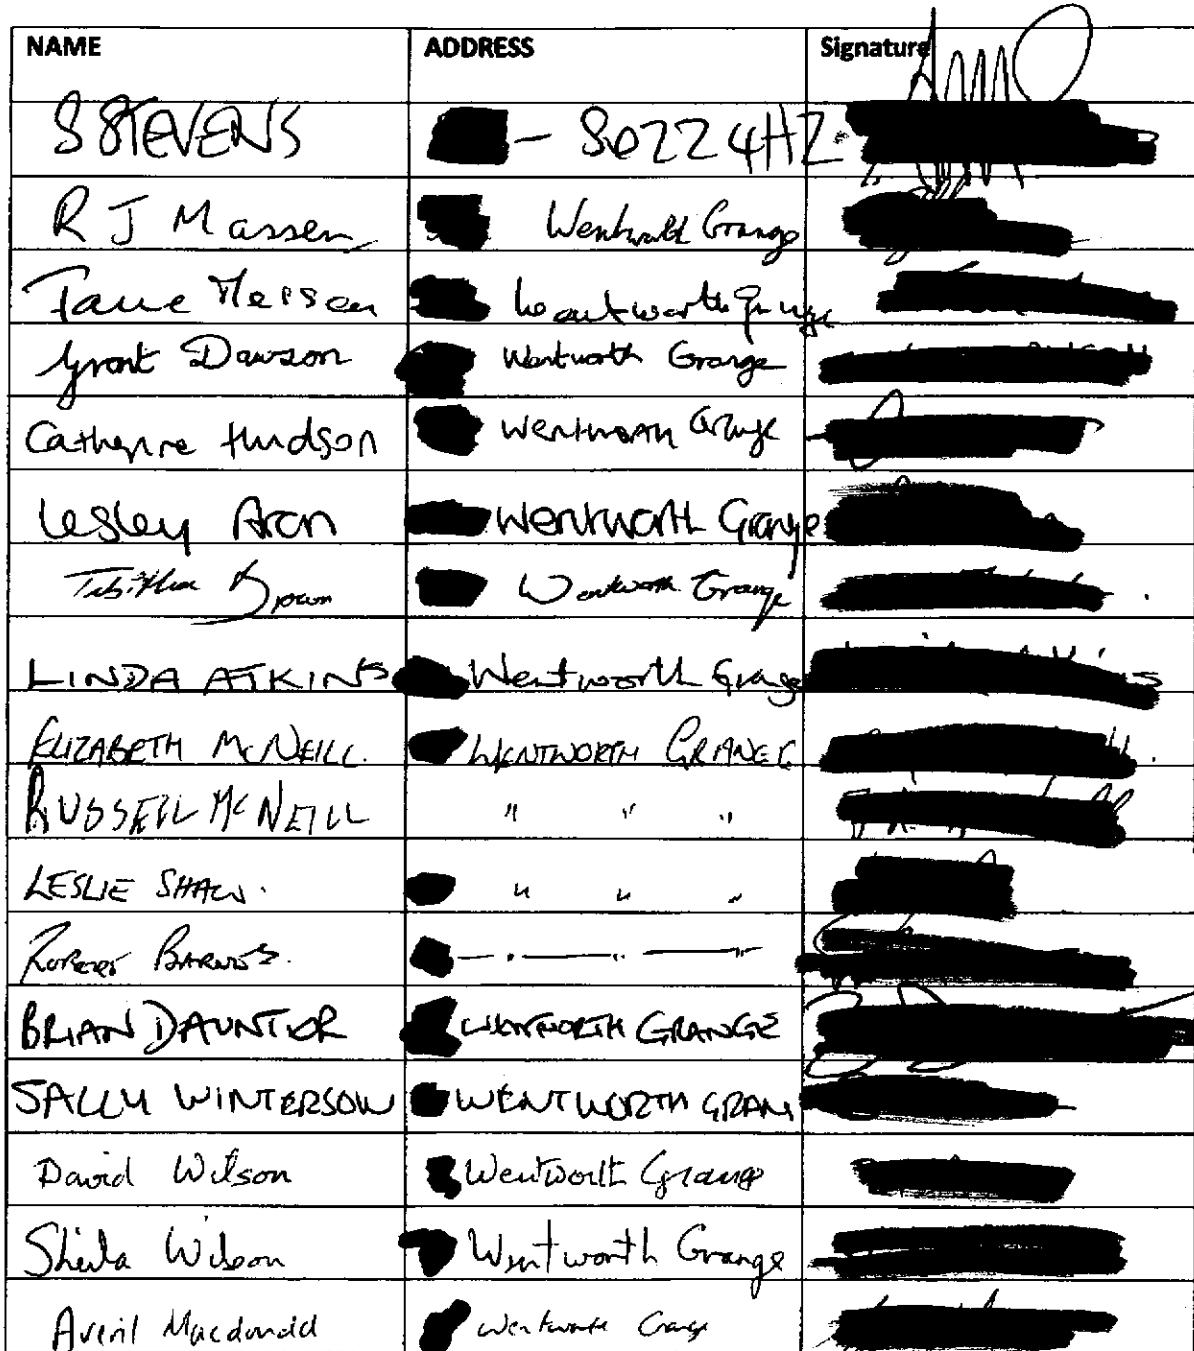 NAME ADDRESS Signature
S STEVENS - SO22 4HZ
R J Massen Wentworth Grange
Massen Wentworth Grange
Grant Dawson Wentworth Grange
Catherine Hudson Wentworth Grange
Lesley Aron Wentworth Grange
Tabitha Brown Wentworth Grange
LINDA ATKINS Wentworth Grange
ELIZABETH MCNEILL. WENTWORTH GRANGE
RUSSELL MCNEILL " " "
LESLIE SHAW. " " "
ROBERT BARNES. — " — " — "
BRIAN DAUNTER WENTWORTH GRANGE
SALLY WINTERSON WENTWORTH GRAN
David Wilson Wentworth Grange
Sheila Wilson Wentworth Grange
Averil Macdonald Wentworth Grange